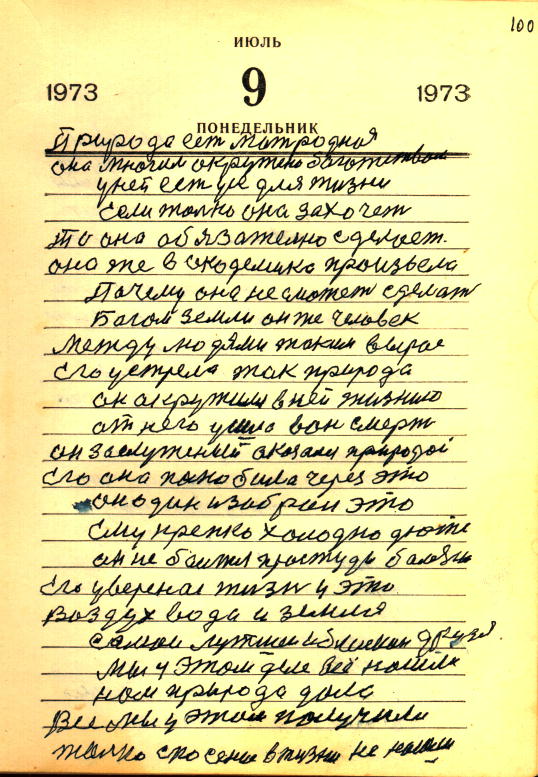 100
ИЮЛЬ
1973 9 1973
ПОНЕДЕЛЬНИК
Природа ест
она многим окружено боготством
у ней ест ус для жизни
если толко она захочет
То она обязателно сделает.
она же в окодемика произвела
Почему она не сможет сделат
Богом земли он же человек
Между людями таким вырос
Его устрела так природа
он окружил в ней жизнию
от него ушла вон смерт
он заслуженый оказался природой
Его она полюбила через это
он один избран это
Ему крепко холодно дюже
он не боится простуды
Его увереная жизн у это
Воздух вода и земля
самаи лутшии и близкии друзя.
Мы у этом деле всё нашли
ном природа дала
Все мы у этом получили
толко спосения в жизни не нашли